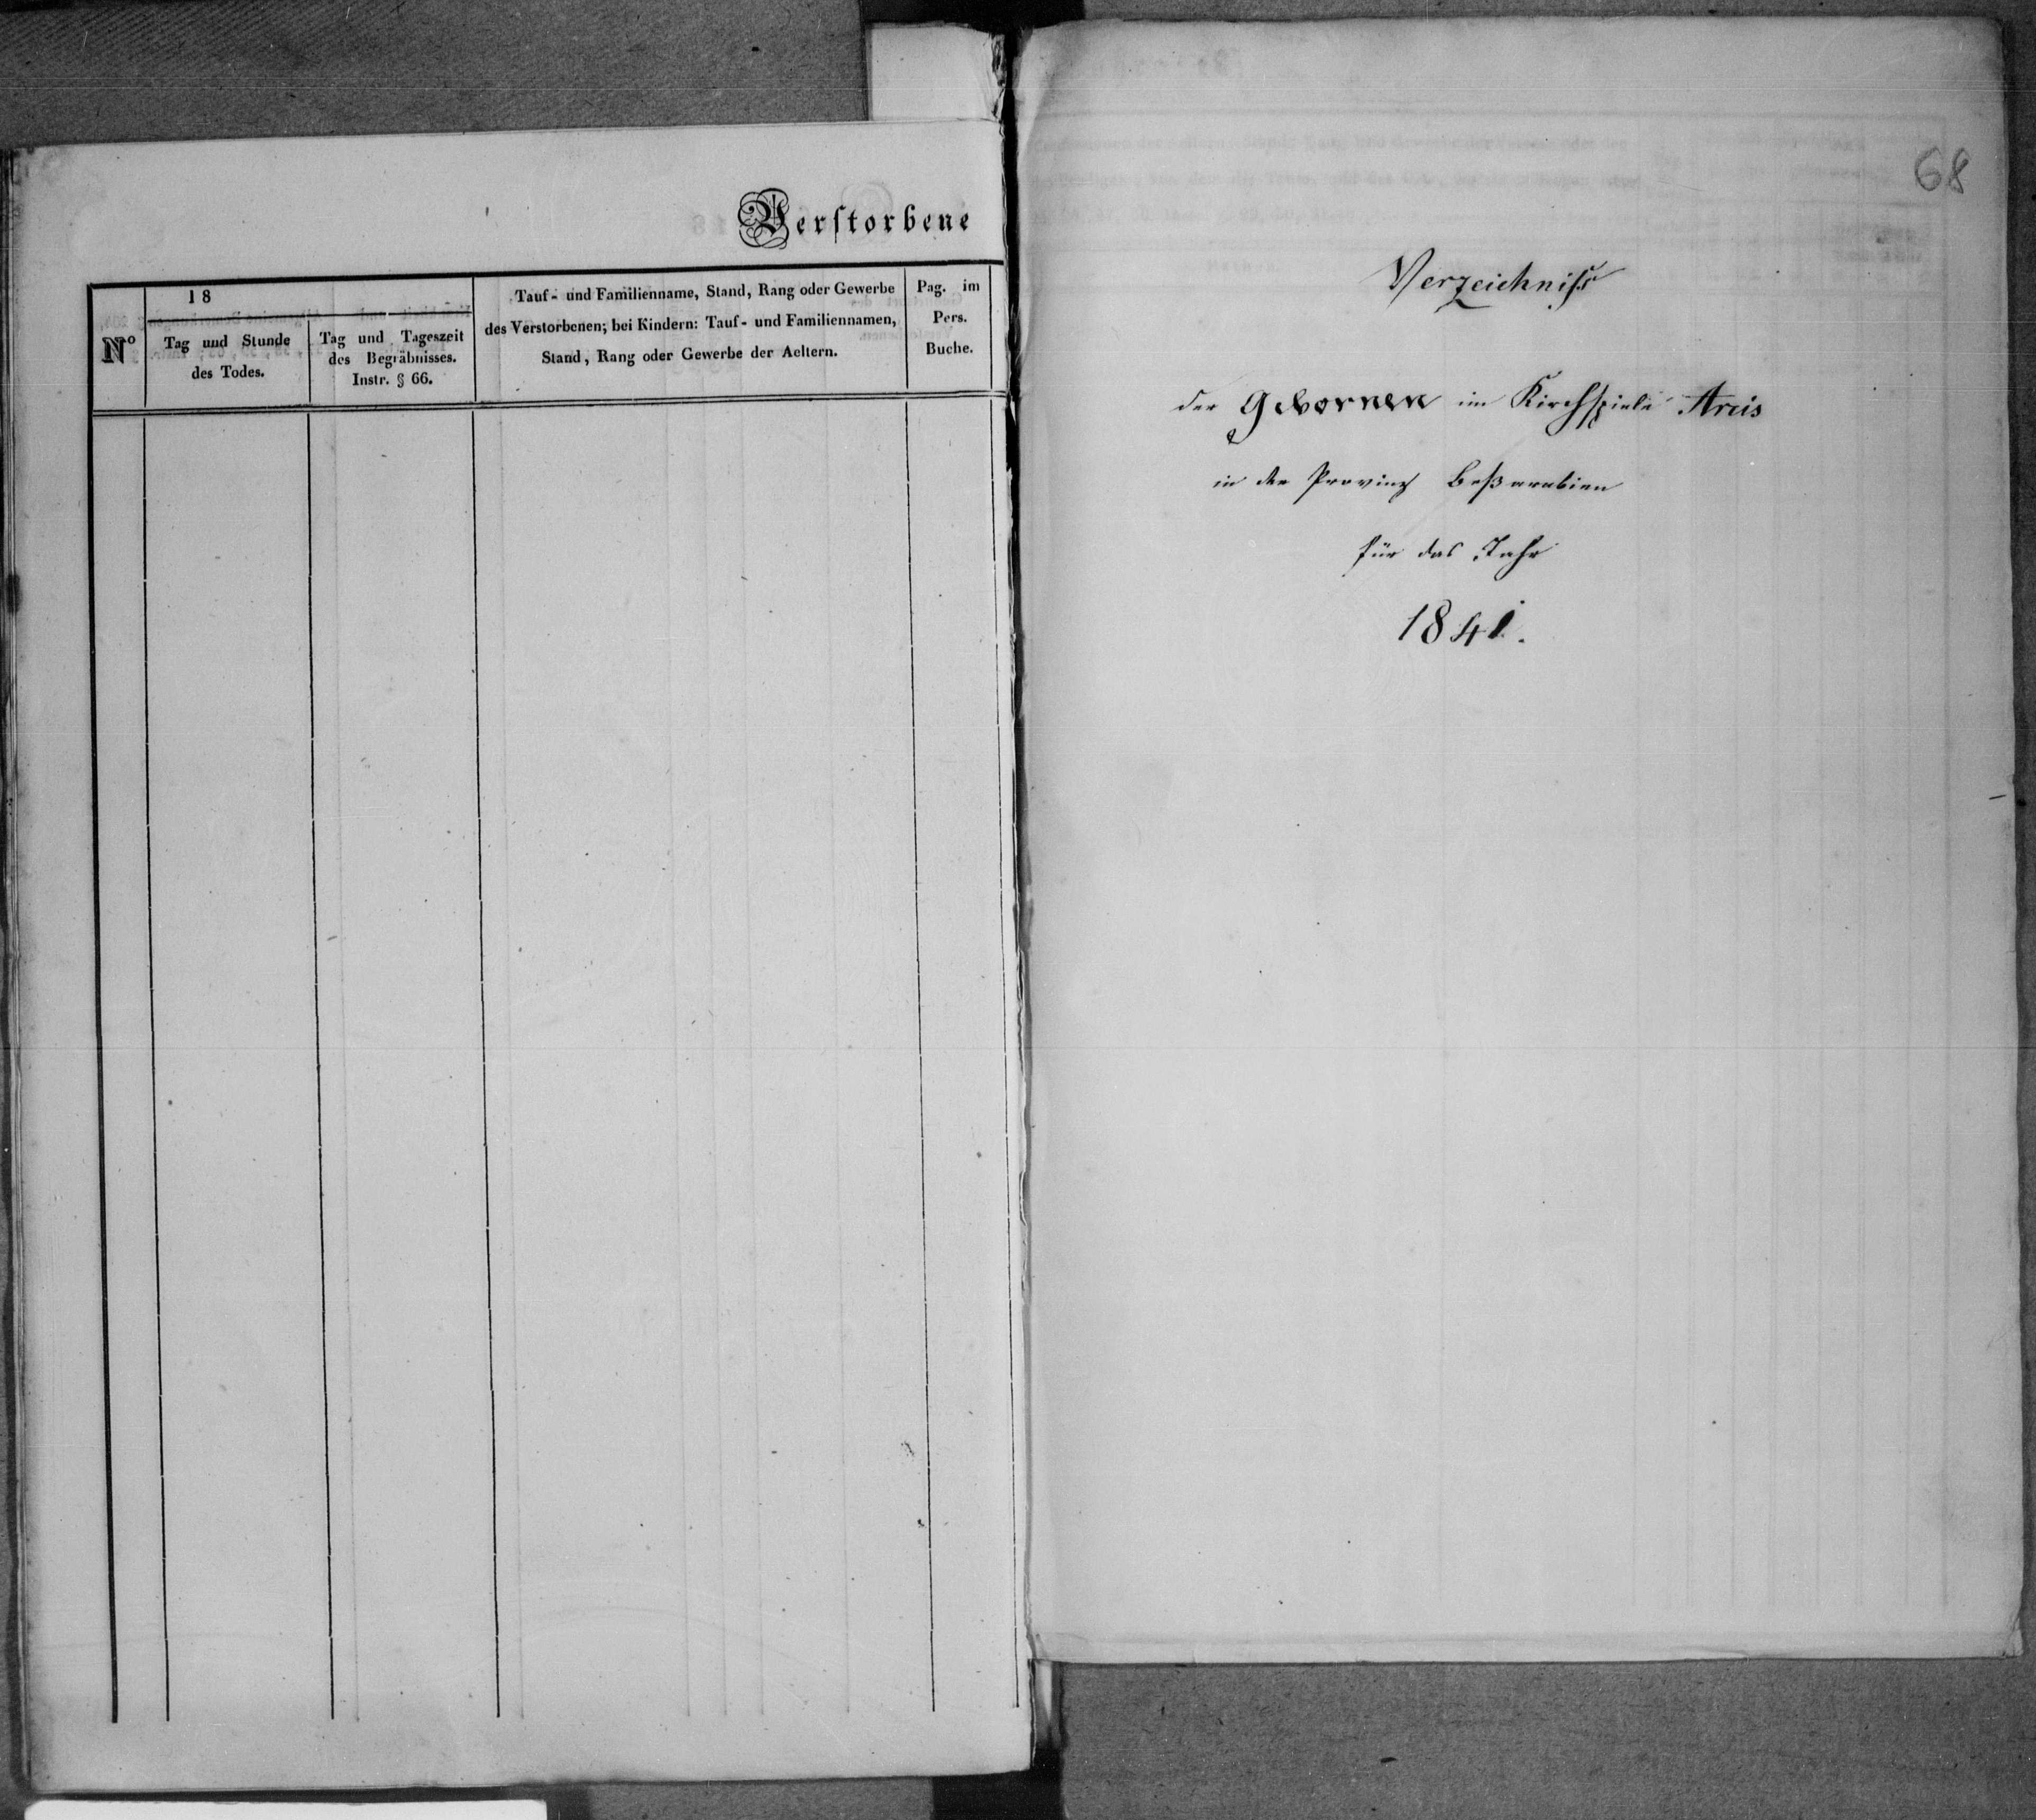 Verstorbene
18
No
Tag und Stunde
des Todes.
Tag und Tageszeit
des Begräbnisses.
Instr. § 66.
Tauf- und Familienname, Stand, Rang oder Gewerbe
des Verstorbenen; bei Kindern: Tauf- und Familiennamen,
Stand, Rang oder Gewerbe der Aeltern.
Pag. im
Pers.
Buche.
68
Verzeichniss
der Gebornen im Kirchspiele Arcis
in der Provinz Beßarabien
für das Jahr
1841.